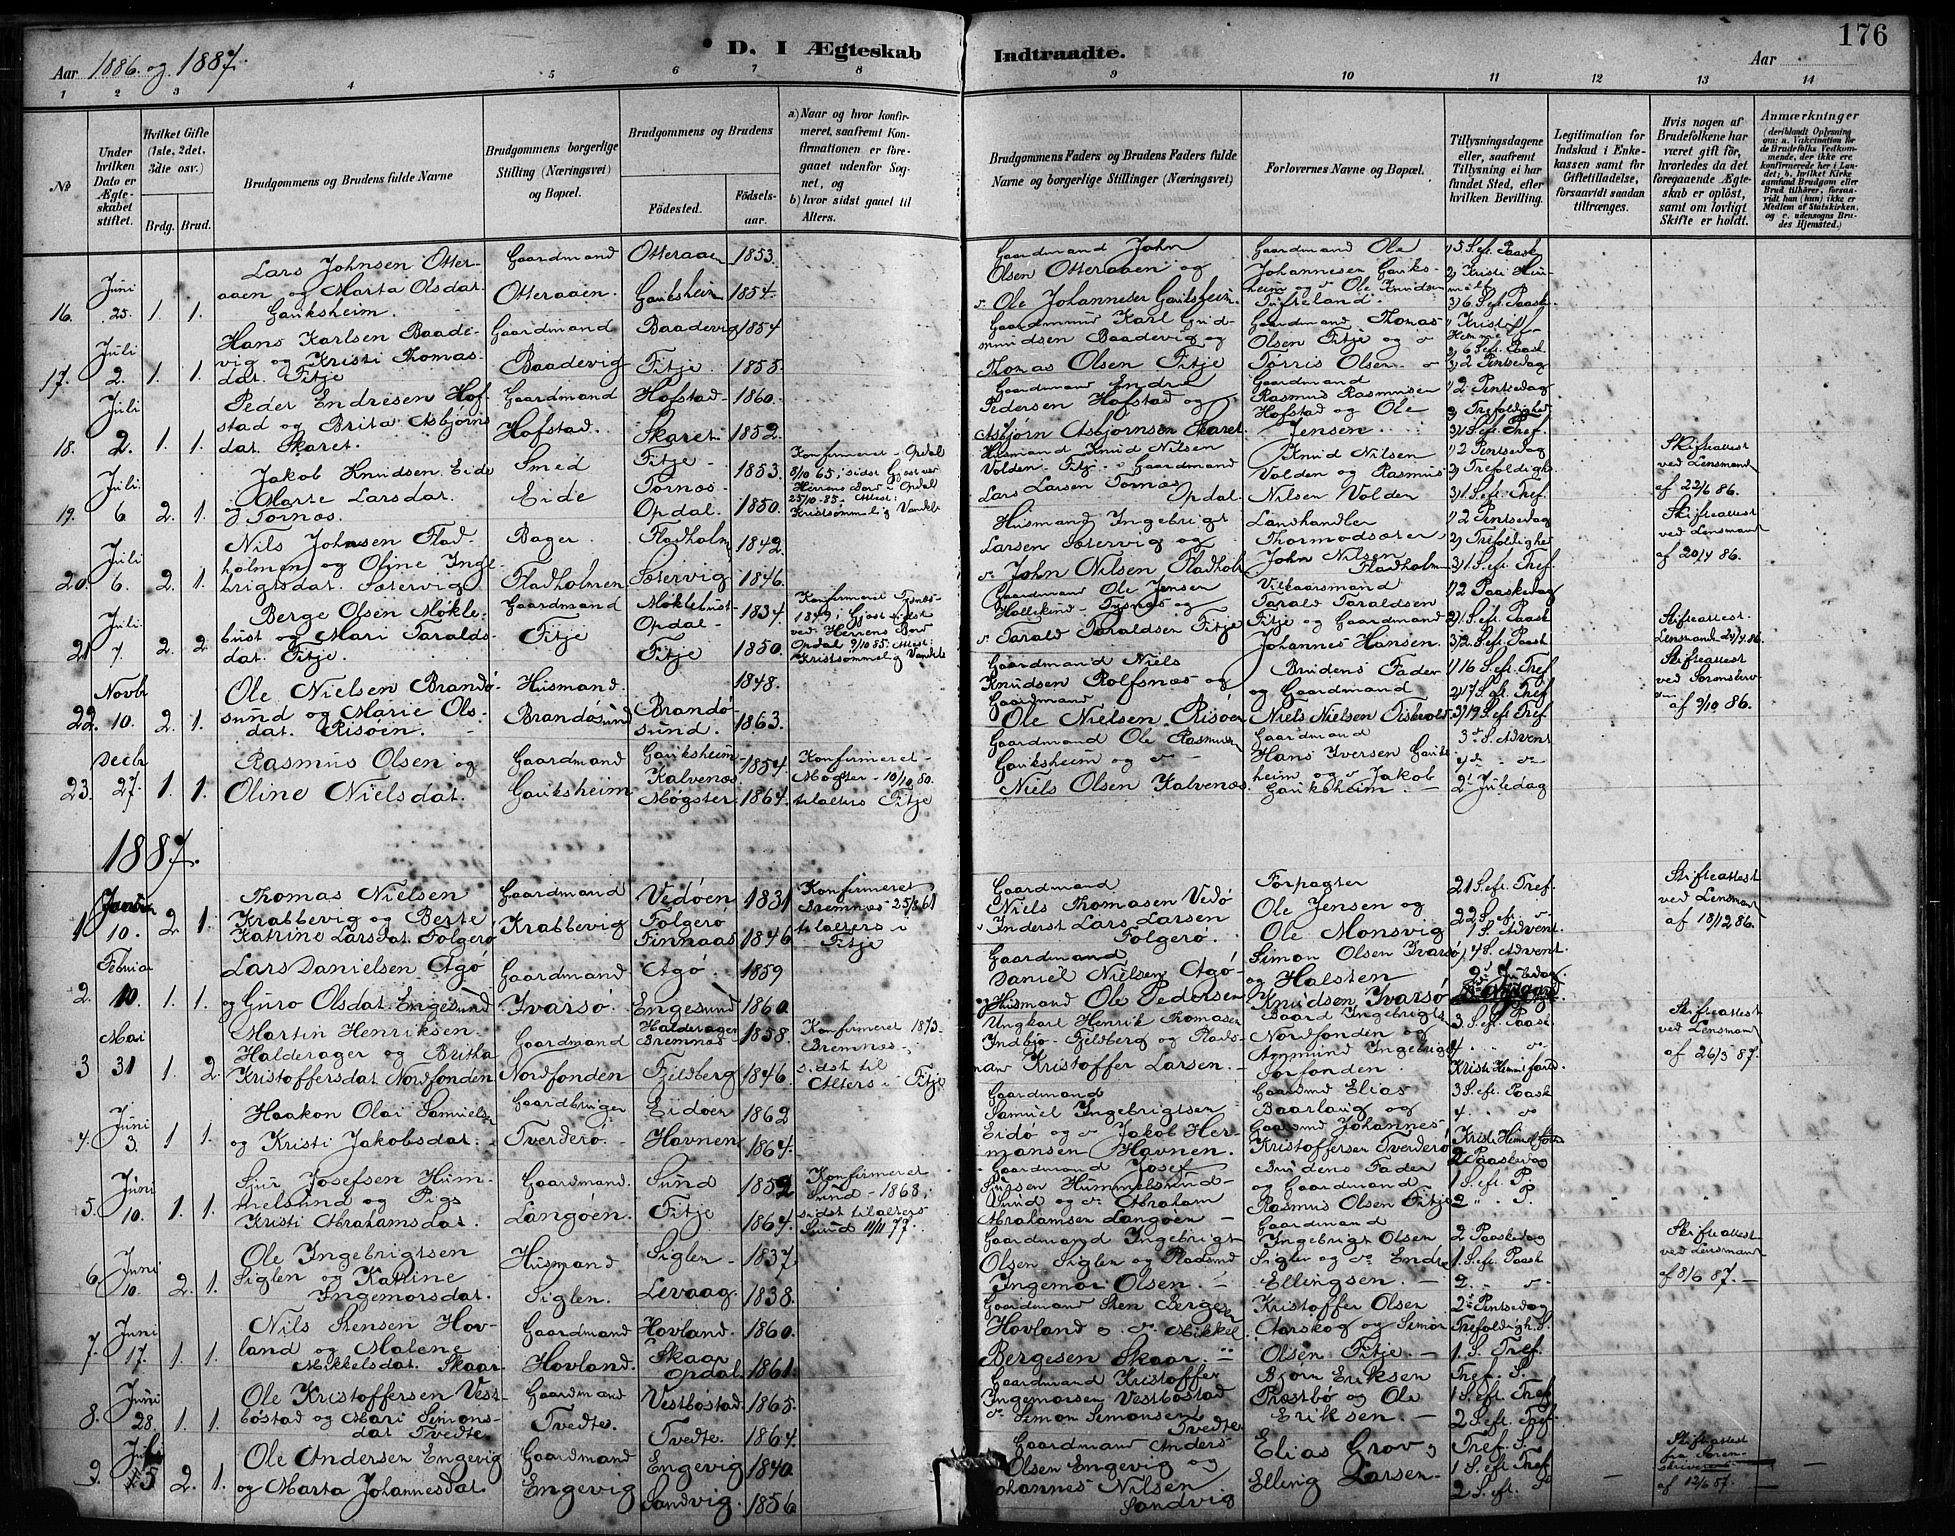 176
Aar 1886. og 1887.
D. I Ægteskab Indtraadte.
Aar
1 2 3 4 5 6 7 8 9 10 11 12 13 14
No
Under hvilken Dato er Ægteskabet stiftet.
Hvilket Gifte (1ste, 2det, 3dte osv.)
Brdg. Brud.
Brudgommens og Brudens fulde Navne
Brudgommens borgerlige Stilling (Næringsvei) og Bopæl.
Brudgommens og Brudens
Fødested.
Fødselsaar.
a) Naar og hvor konfirmeret, saafremt Konfirmationen er foregaaet udenfor Sognet, og
b) hvor sidst gaaet til Alters.
Brudgommens Faders og Brudens Faders fulde Navne og borgerlige Stillinger (Næringsvei)
Forlovernes Navne og Bopæl.
Tillysningsdagene eller, saafremt Tillysning ei har fundet Sted, efter hvilken Bevilling.
Legitimation for Indskud i Enkekassen samt for Giftetilladelse, forsaavidt saadan tiltrænges.
Hvis nogen af Brudefolkene har været gift før, hvorledes da det foregaaende Ægteskab er opløst, samt om lovligt Skifte er holdt.
Anmærkninger
(deriblandt Oplysning om: a. Vakcination for de Brudefolks Vedkommende, der ikke ere konfirmerede her i Landet; b. hvilket Kirkesamfund Brudgom eller Brud tilhører, forsaavidt han (hun) ikke er Medlem af Statskirken, og c. udensogns Brudes Hjemsted.)
16. Juni 25. 1. 1.
Lars Johnsen Otteraaen og Marta Olsdat. Gauksheim.
Gaardmand Otteraaen.
Otteraaen 1853.
Gauksheim 1854.
Gaardmand John Olsen Otteraaen og
Ole Johannesen Gauksheim
Gaardmand Ole Johannesen Gauksheim og Ole Knudsen
1) 5 S. eft. Paask
2) Kristi Him
3) 6 S. eft. Paask
17. Juli 2. 1. 1.
Hans Karlsen Baadevig og Kristi Thomasdat. Fitje
Gaardmand Baadevig
Baadevig 1854
Fitje 1855.
Gaardmand Karl Gudmundsen Baadevig og
Thomas Olsen Fitje
Gaardmand Thomas Olsen Fitje og
Tørris Olsen
1) Kristi Himmelf
2) 6 S. eft. Paask
3) 2 Pentsedag
18. Juli 2. 1. 1.
Peder Endresen Hofstad og Brita Asbjørnsdat. Skaret.
Gaardmand Hofstad.
Hofstad 1860.
Skaret 1852.
Gaardmand Endre Pedersen Hofstad og
Asbjørn Asbjørnsen Skaret.
Gaardmand Rasmus Rasmusen Hofstad og Ole Jensen
1) 2 Pentsedag
2) Trefoldighed
3) 1 S. eft. Tref.
19. Juli 6 2. 1.
Jakob Knudsen Eide og Marte Larsdat. Tornæs.
Smed Eide
Fitje 1853.
Tornæs Opdal. 1850.
Konfirmeret Opdal 8/10 65; sidst Gjæst ver Herrens Bord i Opdal 25/10-85. Attest: Kristsømmelig Vandel
Husmand Knud Nilsen Volden - Fitje - Gaardmand
Lars Larsen Tornæs Opdal
Knud Nilsen Volden og Rasmus Nilsen Volden
1) 2 Pentsedag
2) Trefoldigh.
3) 1. S. eft. Tref.
Skifteattest ved Lensmand af 22/6 86.
20. Juli 6. 2. 1.
Nils Johnsen Fladholmen og Oline Ingebrigtsdat. Sætervig
Bager. Fladholmen
Fladholm 1842.
Sætervig 1846.
Husmand Ingebrigt Larsen Sætervig og
John Nilsen Fladhol
Landhandler Thormodsæter
John Nilsen Fladholm
1) 2 Pentsedag
2) Trefoldighed
3) 1 S. eft. Tref.
Skifteattest ved Lensmand af 20/4 86.
21 Juli 7. 2. 2.
Berge Olsen Møklebust og Mari Taraldsdat. Fitje.
Gaardmand Fitje
Møklebust Opdal 1834.
Fitje 1850.
Konfirmeret Tysnæs 1849; Gjæst sidst ved Herrens Bord Opdal 9/10 85. Attest: Kristsømmelig Vandel
Gaardmand Ole Jensen Tysnæs og
Tarald Taraldsen Fitje
Tarald Taraldsen Fitje og Gaardmand
Johannes Hansen.
1) 2 Paaskedag
2) 1 S. eft. Paask
3) 2 S. eft. Paask
Skifteattest Lensmand 24/4 86.
22. Novbr 10. 2. 1.
Ole Nielsen Brandøsund og Marie Olsdat. Risøen.
Husmand Brandøsund
Brandøsund. 1848.
1863.
Gaardmand Niels Knudsen Rolfsnæs og
Gaardmand Ole Nielsen Risøen
Brudens Fader og Gaardmand
Niels Nielsen
1) 16 S. eft. Tref.
2) 17 S. eft. Tref
3) 19 S. eft. Tref
Skifteattest ved Sorenskriveren af 9/10 86.
23. Decbr 27. 1. 1.
Rasmus Olsen og Oline Nielsdat.
Gaardmand Gauksheim
Gauksheim 1854.
Kalvenæs Møgster 1864.
Konfirmeret Møgster 10/10 80. tilalters Fitje
Gaardmand Ole Rasmusen Gauksheim og
Niels Olsen Kalvenæs
Gaardmand Hans Iversen Gauksheim og Jakob Gauksheim.
3 S. Advent
4
2 Juledag
1887.
1 Januar 10. 2. 1.
Thomas Nielsen Krabbevig og Berte Katrine Larsdat. Folgerø
Gaardmand Krabbevig
Vedøen 1831
Folgerø Finnaas 1846
Konfirmeret Bremnæs - 25/8 61 tilalters i Fitje
Gaardmand Niels Thomasen Vedø
Inderst Lars Larsen Folgerø.
Forpagter Ole Jensen og
Ole Monsvig
21 S. eft. Tref.
22 S. eft.
1 S. Advent
Skifteattest ved Lensmand af 18/12 86.
2. Februar 10. 1. 1.
Lars Danielsen Agø og Guro Olsdat. Engesund
Gaardmand Ivarsø.
Agø. 1859
Engesund 1860.
Gaardmand Daniel Nielsen Agø
og Husmand Ole Pedersen
Simon Olsen Ivarsø og Halsten
Knudsen Ivarsø
4 S. Advent.
2 Juledag.
3 Mai 31 1. 2.
Martin Henriksen Halderager og Britha Kristoffersdat Nordfonden
Gaardmand Nordfonden
Halderager Bremnæs 1858.
Fjeldberg 1846.
Konfirmeret 1873. Bremnæs - sidst til Alters i Fitje
Ungkarl Henrik Thomasen Indbjo - Fjeldberg og Pladsmand Kristoffer Larsen
Baard Ingebrigts. Nordfonden og Ammund Ingebrigts
3. S. eft. Paask.
4
Kristi Himmelfard
Skifteattest ved Lensmand af 26/3 87.
4. Juni 3. 1 1.
Haakon Olai Samuelsen og Kristi Jakobsdat.
Gaardbruger Tverderø.
Eidøen 1862
Havnen 1864.
Gaardmand Samuel Ingebrigtsen Eidø og Jakob Hermansen Havnen.
Gaardmd Elias Baarlaug og Gaardmd Johannes Kristoffersen Tverderø
3 S. eft. Paask
4.
Kristi Himmelfard
5. Juni 10. 1. 1.
Sjur Josefsen Hummelsund og Pige Kristi Abrahamsdat.
Gaardmand. Langøen.
Sund 1852
Fitje 1864.
Konfirmeret Sund - 1868; sidst tilalters Sund 11/11 77.
Gaardmand Josef Sjursen Hummelsund Sund og Abraham Abrahamsen Langøen
Brudens Fader og Gaardmand Rasmus Olsen Fitje
2 Paaskedag
1 S. eft. P.
2 " P.
6. Juni 10. 2. 1.
Ole Ingebrigtsen Siglen og Katrine Ingemorsdat.
Husmand Siglen.
Siglen 1837.
Levaag. 1838.
Gaardmand Ingebrigt Olsen Siglen og Pladsmd Ingemor Olsen.
Gaardmand Ingebrigt Olsen Siglen og Endre Ellingsen.
2 Paaskedag
1. S. eft. Paask
2.
Skifteattest ved Lensmand af 8/6 87.
7. Juni 17. 1 1.
Nils Stensen Hovland og Malene Mikkelsdat. Skaar
Gaardmand Hovland.
Hovland. 1860.
Skaar Opdal. 1861.
Gaardmand Sten Bergesen Hovland og Mikkel Bergesen Skaar.
Kristoffer Olsen Aarskog og Simon Olsen Fitje.
2 Pentsedag
Trefoldigh. S.
1. S. Tref.
8. Juni 28. 1. 1.
Ole Kristoffersen Vestbøstad og Mari Simonsdat Tvedte
Gaardmand Tvedte.
Vestbøstad 1865.
Tvedte. 1864.
Gaardmand Kristoffer Ingemorsen Vestbøstad
Simon Simonsen Tvedte
Bjørn Eriksen Præstbø og Ole Eriksen.
Tref. S.
1 S. eft. Tref
2 S. eft. Tref.
9. Juli 5 2. 1.
Ole Andersen Engevig og Marta Johannesdat.
Gaardmand Engevig
Engevig 1840.
Sandvig. 1856
Gaardmand Anders Olsen Engevig og
Johannes Nilsen Sandvig
Elias Grov og Elling Larsen
Tref. S.
1 S. eft. Tref
2 S. eft. do
Skifteattest fra Sorenskriveren af 12/6 87.